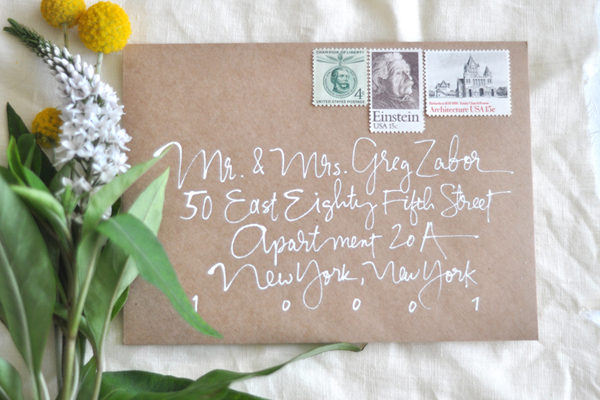 4¢
Einstein
USA 15c
Architecture USA 15c
Mr. & Mrs. Greg Zabor
50 East Eighty Fifth Street
Apartment 20A
New York, New York
10001